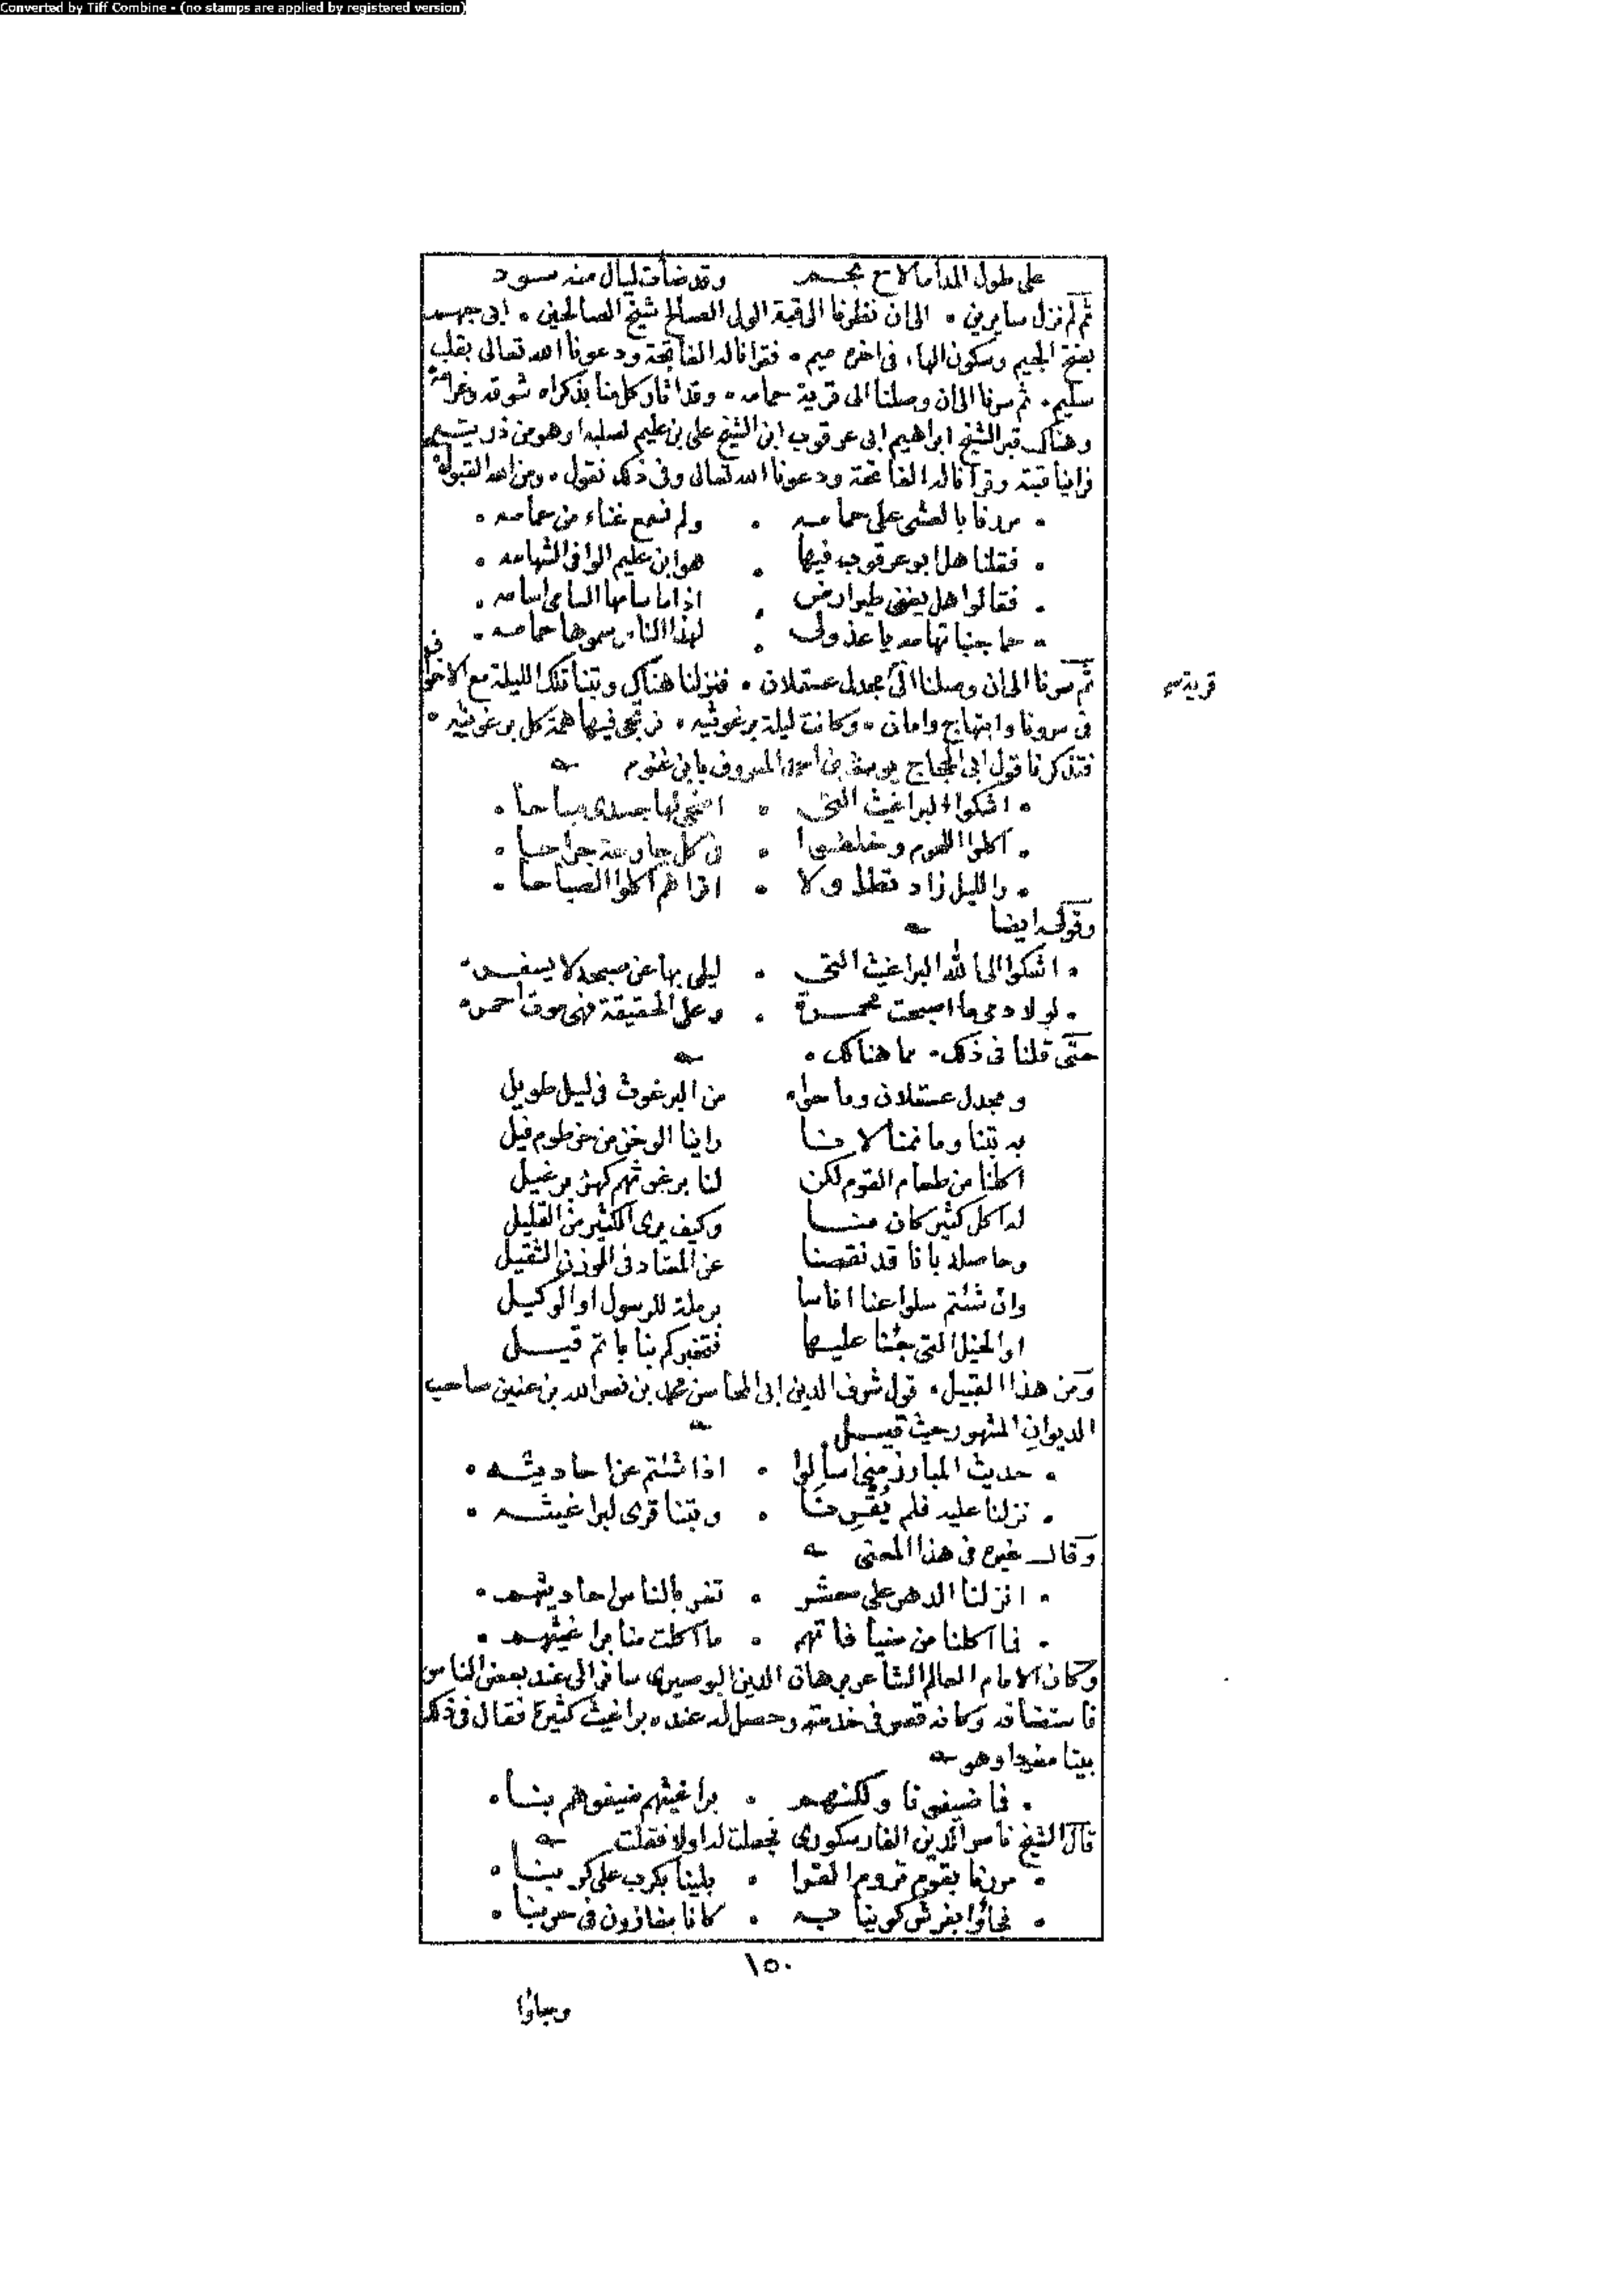 Converted by Tiff Combine - (no stamps are applied by registered version)
على طول المدا ما لاح نجم وقد ضأت ليال منه سود
ثم لم نزل سايرين ٠ الى ان نظرنا الى قبة الولى الصالح شيخ الصالحين ٠ ابى جهم
بفتح الجيم وسكون الهاء فى اخره ميم ٠ فقرانا له الفاتحة ودعونا الله تعالى بقلب
سليم ٠ ثم سرنا الى ان وصلنا الى قرية حمامه ٠ وقد اثار كل منا بذكراه شوقه وغرامه
وهناك قبر الشيخ ابراهيم ابى عرقوب ابن الشيخ على بن عليم لصلبه او هو من ذريته
فراينا قبته وقرآنا له الفاتحة ودعونا الله تعالى وفى ذلك نقول ٠ ومن الله القبول
٠ مررنا بالعشى على حمامه ٠ ولم نسمع غناء من حمامه ٠
٠ فقلنا هل ابو عرقوب فيها ٠ هو ابن عليم الوافى الشهامه ٠
٠ فقالوا هل يغنى طير ارض ٠ اذا ما سامها السامى اسامه ٠
٠ حما جنباتها مه يا عذولى ٠ لهذا الناس سموها حمامه ٠
ثم سرنا الى ان وصلنا الى مجدل عسقلان ٠ فنزلنا هناك وبتنا تلك الليلة مع الاخوان
قرية
فى سرونا وابتهاج وامانى ٠ وكانت ليلة برغوثيه ٠ فيها همة كل برغوثيه ٠
فتذكرنا قول ابى الحجاج يوسف بن احمد المعروف بابن غنوم
٠ اشكوا البراغيث التى ٠ اضحى لها جسدى مباحا ٠
٠ اكلوا اللحوم وخلفوا ٠ فى كل جارحة جراحا ٠
٠ والليل زاد تطاولا ٠ اتراهم اكلوا الصباحا ٠
وقوله ايضا
٠ اشكوا الى الله البراغيث التى ٠ ليلى بها عن صبحه لا يسفر ٠
٠ لولا دمى ما اصبحت محمرة ٠ وعلى الحقيقة فهى موت احمر ٠
حتى قلنا فى ذلك ٠ مما هنالك ٠
ومجدل عسقلان وما حواه من البرغوث فى ليل طويل
به بتنا وما نمنا لانا راينا الوخز من خرطوم فيل
اكلنا من طعام القوم لكن لنا برغوثهم
له اكل كثير كان منا وكيف يرى الكثير من القليل
وحاصله بانا قد نقصنا عن المعتاد فى الوزن الثقيل
وان شئتم سلوا عنا اناسا برملة للرسول او الوكيل
او الخيل التى جئنا عليها فتخبركم بنا ما تم قيل
ومن هذا القبيل ٠ قول شرف الدين ابى المحاسن محمد بن نصر الله بن عنين صاحب
الديوان المشهور حيث قيل
٠ حديث المبارز منى اسألوا ٠ اذا شئتم عن احاديثه ٠
٠ نزلنا عليه فلم يُقْرِنَا ٠ وبتنا قرى لبراغيثه ٠
وقال غيره فى هذا المعنى
٠ انزلنا الدهر على معشر ٠ تغر بالناس احاديثهم ٠
٠ فما اكلنا من ضيافاتهم ٠ ما اكلت منا براغيثهم ٠
وكان الامام العالم الشاعر برهان الدين البوصيرى سافر الى عند بعض الناس
فاستضافه وكانه قصر فى خدمته وحصل له عنده براغيث كثيرة فقال فى ذلك
بيتا مفردا وهو
٠ فما ضيفونا ولكنهم ٠ براغيثهم ضيفوهم بنا ٠
قال الشيخ ناصر الدين الفارسكورى فجعلت له اولا فقلت
٠ مررنا بقوم نروم القرا ٠ بلينا بكرب على كربنا ٠
٠ فجاؤا بفرش كوينا به ٠ كانا بغازون فى حربنا ٠
١٥٠
وجاؤا